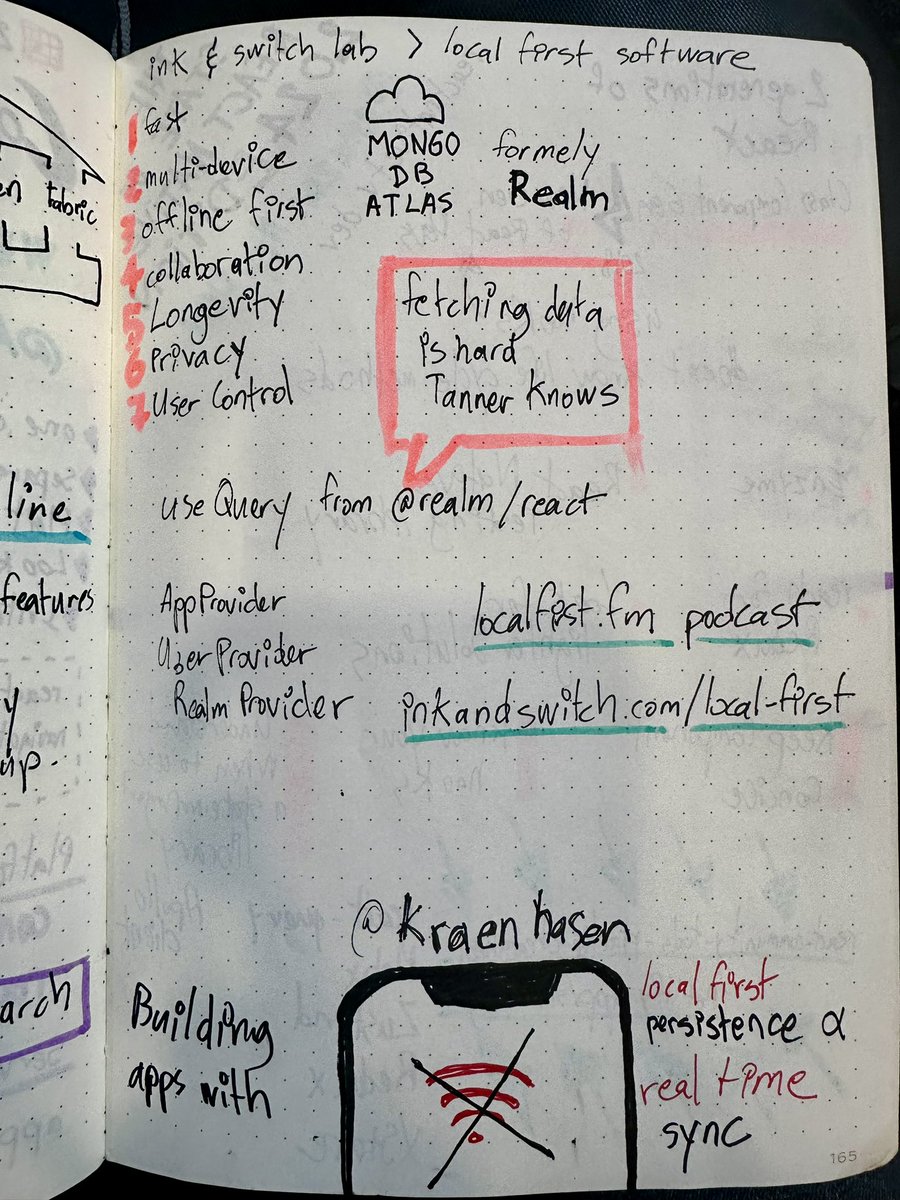 ink & switch lab > local first software
1 fast
2 multi-device
3 offline first
4 collaboration
5 Longevity
6 Privacy
7 User Control
MONGO
DB
ATLAS
formely
Realm
fetching data
is hard
Tanner Knows
useQuery from @realm/react
AppProvider
UserProvider
RealmProvider
localfirst.fm podcast
inkandswitch.com/local-first
@Kraenhasen
Building
apps with
local first
persistence &
real time
sync
165
en fabric
line
features
up.
arch